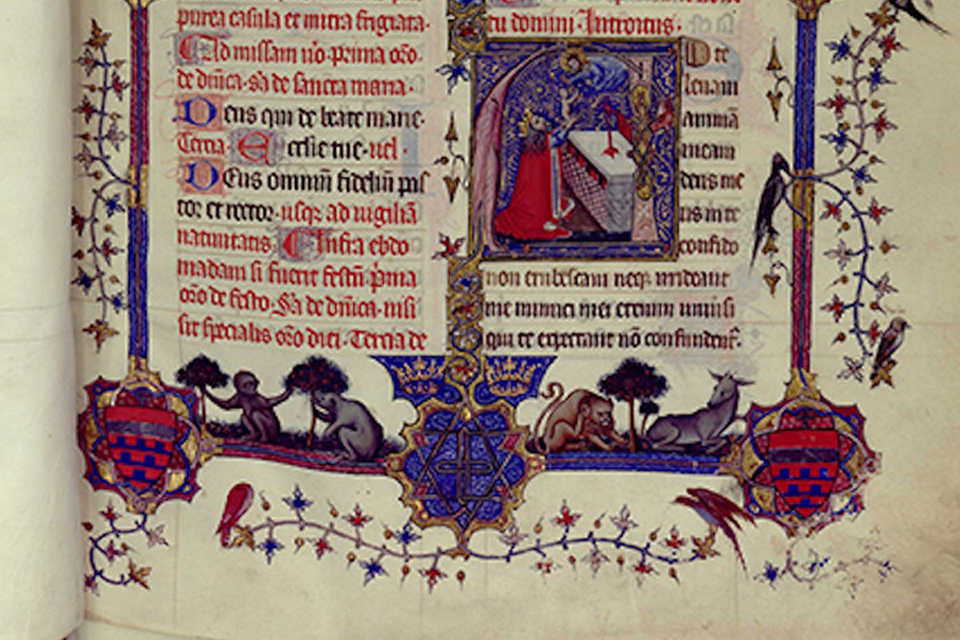 purea casula et mitra frigiata.
Ad missam uo prima oro
de dnica. sa de sancta maria.
Deus qui de beate marie.
Tercia. Ecclesie tue. uel.
Deus omnium fidelium pas
tor et rector. usqz ad uigilia
natiuitatis. Infra ebdo
madam si fuerit festu prima
oro de festo. Sa de dnica. nisi
sit specialis oro diei. Tercia de
tu domini Introitus.
D te
leuaui
animã
meam
deus me
us in te
confido
non erubescam neqz irrideant
me inimici mei etenim uniuersi
qui te expectant nõ confundent.